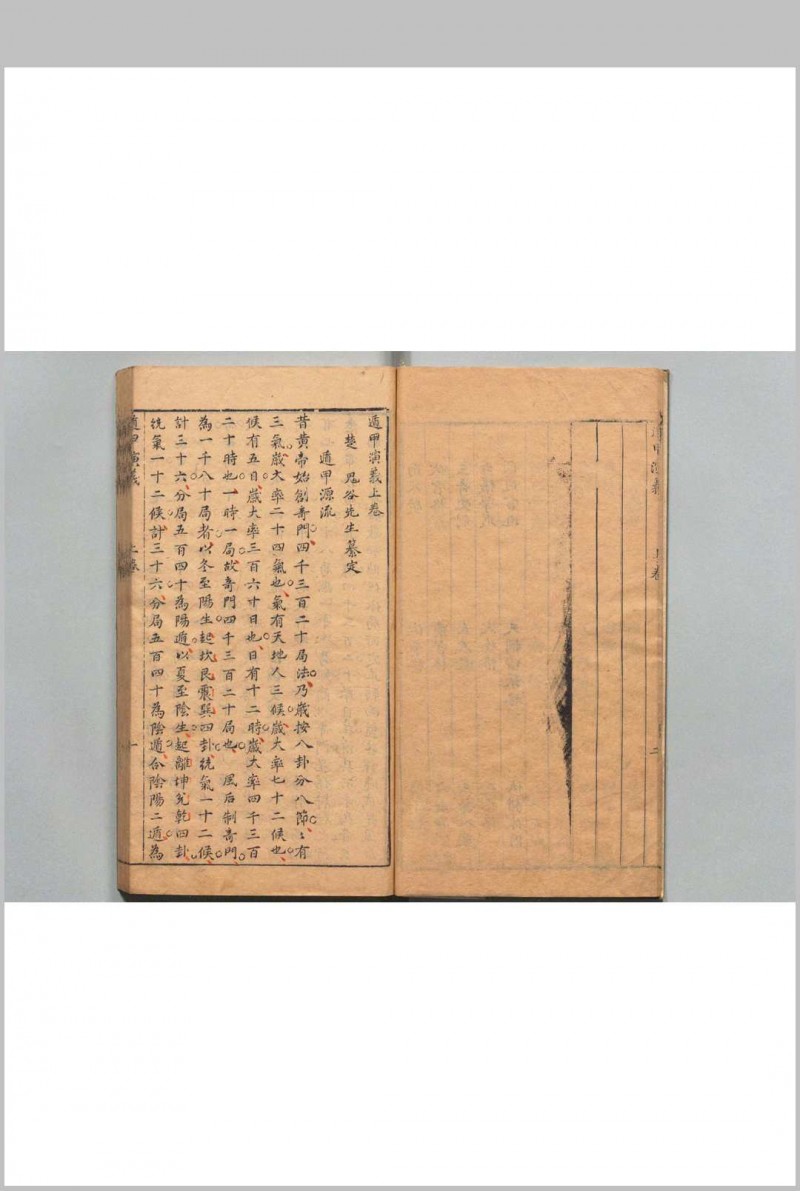 遁甲演義 上卷
二
遁甲演義上卷
楚 鬼谷先生纂定
遁甲源流
昔黃帝始創奇門四千三百二十局法乃歲按八卦分八節〻有
三氣歲大率二十四氣也氣有天地人三候歲大率七十二候也
候有五日歲大率三百六十日也日有十二時歲大率四千三百
二十時也一時一局故奇門四千三百二十局也 風后制奇門
為一千八十局者以冬至陽生起坎艮震巽四卦統氣一十二候
計三十六分局五百四十為陽遁以夏至陰生起離坤兌乾四卦
統氣一十二候計三十六分局五百四十為陰遁合陰陽二遁為
遁甲演義 上卷 一